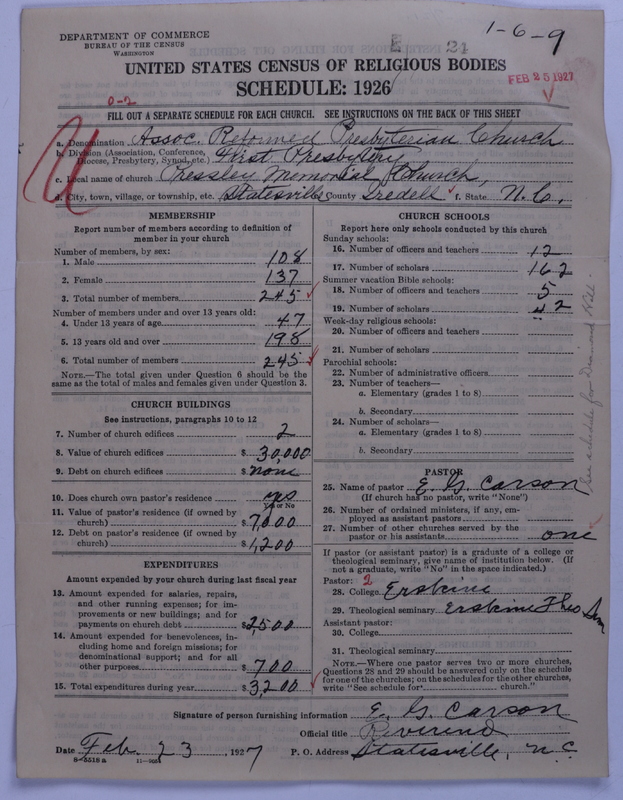 DEPARTMENT OF COMMERCE
BUREAU OF THE CENSUS
WASHINGTON
E 21
1-6-9
UNITED STATES CENSUS OF RELIGIOUS BODIES
SCHEDULE: 1926
FEB 25 1927
0-2
FILL OUT A SEPARATE SCHEDULE FOR EACH CHURCH. SEE INSTRUCTIONS ON THE BACK OF THIS SHEET
a. Denomination Assoc. Reformed Presbyterian Church
b. Division (Association, Conference, Diocese, Presbytery, Synod, etc.) First Presbytery
c. Local name of church Pressley Memorial Church,
d. City, town, village, or township, etc. Statesville e. County Iredell f. State N.C.,
MEMBERSHIP
Report number of members according to definition of
member in your church
Number of members, by sex:
1. Male 108
2. Female 137
3. Total number of members 245
Number of members under and over 13 years old:
4. Under 13 years of age 47
5. 13 years old and over 198
6. Total number of members 245
NOTE.—The total given under Question 6 should be the
same as the total of males and females given under Question 3.
CHURCH BUILDINGS
See instructions, paragraphs 10 to 12
7. Number of church edifices 2
8. Value of church edifices $30,000
9. Debt on church edifices $none
10. Does church own pastor's residence yes
Yes or No
11. Value of pastor's residence (if owned by
church) $7,000
12. Debt on pastor's residence (if owned by
church) $1,200
EXPENDITURES
Amount expended by your church during last fiscal year
13. Amount expended for salaries, repairs,
and other running expenses; for im-
provements or new buildings; and for
payments on church debt $2,500
14. Amount expended for benevolences, in-
cluding home and foreign missions; for
denominational support; and for all
other purposes $700
15. Total expenditures during year $3,200
CHURCH SCHOOLS
Report here only schools conducted by this church
Sunday schools:
16. Number of officers and teachers 12
17. Number of scholars 162
Summer vacation Bible schools:
18. Number of officers and teachers 5
19. Number of scholars 42
Week-day religious schools:
20. Number of officers and teachers
21. Number of scholars
Parochial schools:
22. Number of administrative officers
23. Number of teachers—
a. Elementary (grades 1 to 8)
b. Secondary
24. Number of scholars—
a. Elementary (grades 1 to 8)
b. Secondary
See schedule for
PASTOR
25. Name of pastor E. G. Carson
(If church has no pastor, write "None")
26. Number of ordained ministers, if any, em-
ployed as assistant pastors
27. Number of other churches served by the
pastor or his assistants one
If pastor (or assistant pastor) is a graduate of a college or
theological seminary, give name of institution below. (If
not a graduate, write "No" in the space indicated.)
Pastor: 2
28. College Erskine
29. Theological seminary Erskine Theo Sem
Assistant pastor:
30. College
31. Theological seminary
NOTE.—Where one pastor serves two or more churches,
Questions 28 and 29 should be answered only on the schedule
for one of the churches; on the schedules for the other churches,
write "See schedule for church."
Signature of person furnishing information E. G. Carson
Official title Reverend
Date Feb. 23, 1927 P. O. Address Statesville, N.C.
8-5518 a